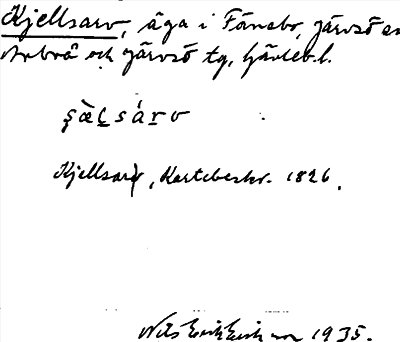 Kjellsarv, äga i Fånebo, Järvsö sn
Arbrå och Järvsö tg, Gävleb. l.
ʂæ̀ʟsárv
Kjellsarf, Kartbeskr. 1826.
Nils Erik Eriksson 1935.